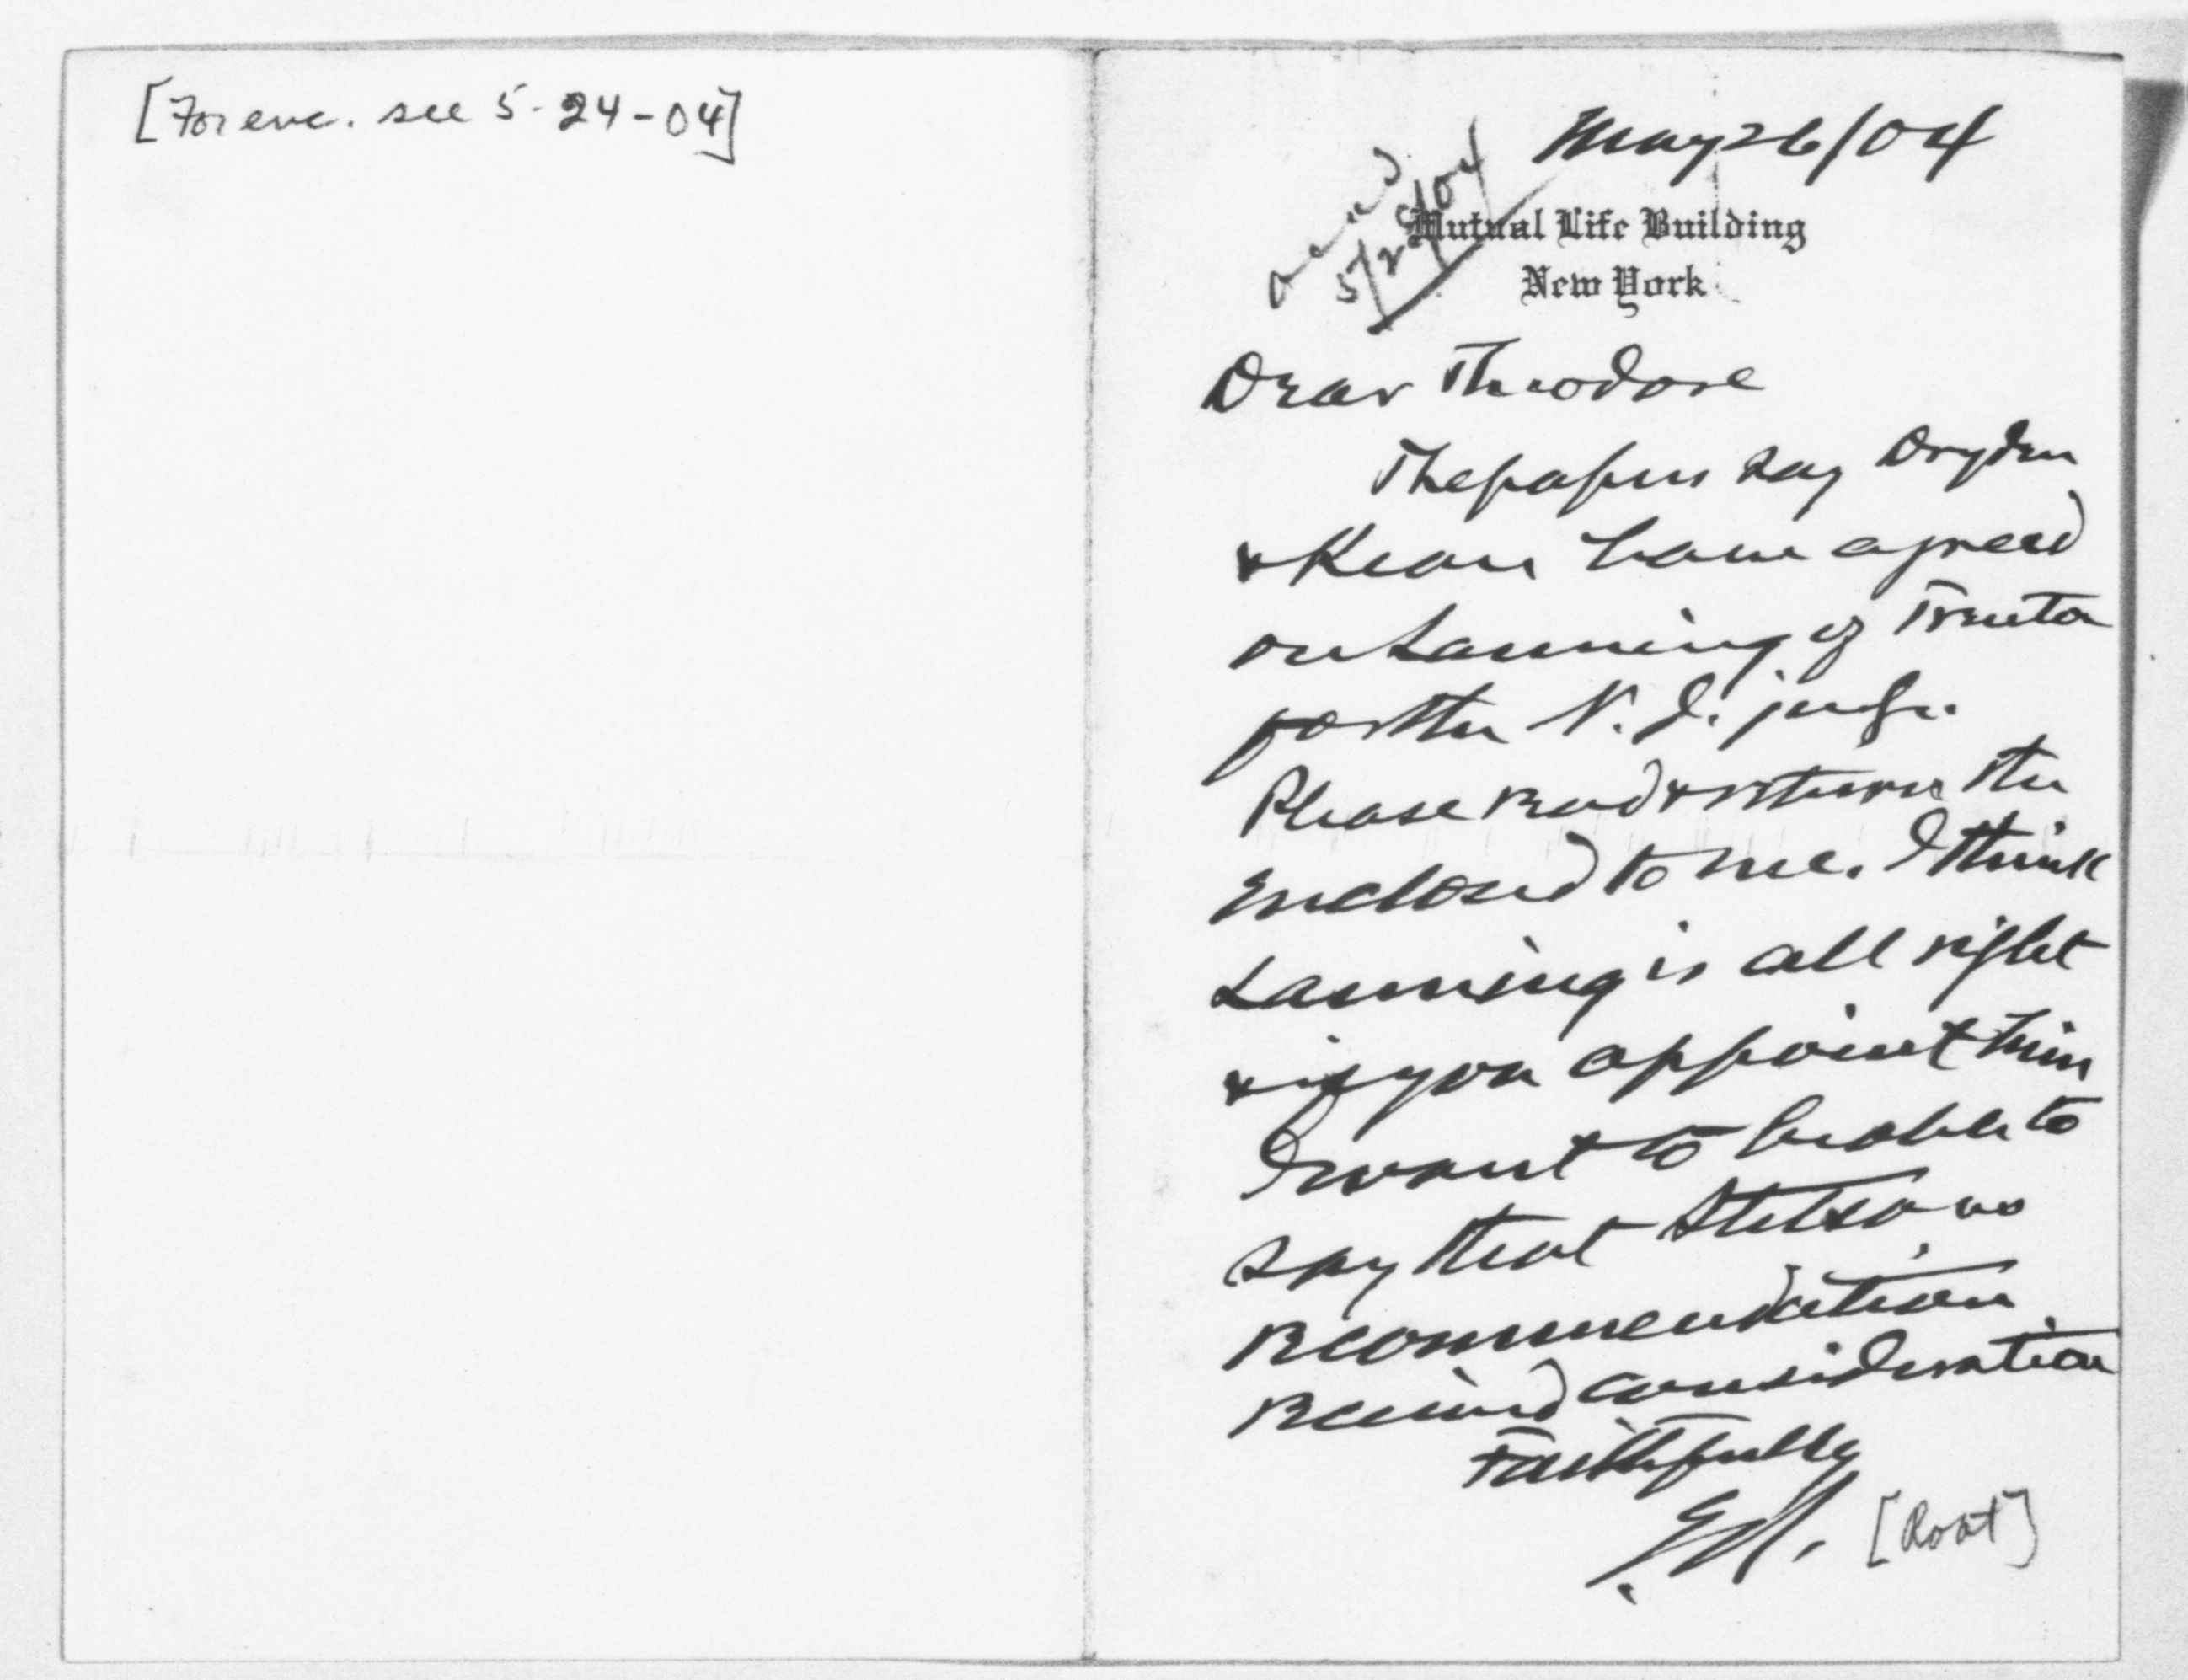 [For enc. see 5-24-04]
May 26/04
ackd
5/28/04
Mutual Life Building
New York
Dear Theodore
The papers say Dryden
& Kean have agreed
on Lanning of Trenton
for the N. J. judge.
Please read & return the
enclosed to me. I think
Lanning is all right
& if you appoint him
I want to be able to
say that Stetson's
recommendation
received consideration
Faithfully
E R. [Root]